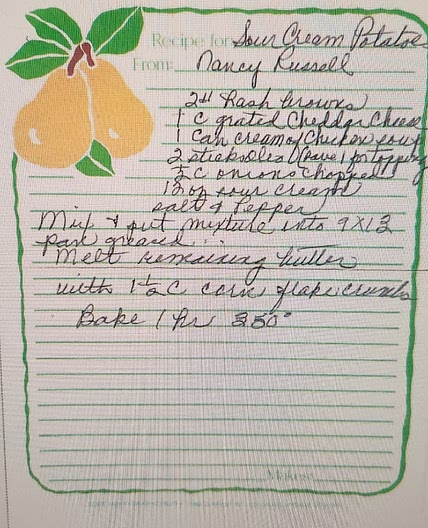 Recipe for Sour Cream Potatoes
From: Nancy Russell
2# Hash browns
1 C grated Cheddar Cheese
1 Can cream of Chicken soup
2 sticks oleo (save 1 for topping
½ C onions chopped
12 oz sour cream
salt & pepper
Mix & put mixture into 9X13
pan greased...
Melt remaining butter
with 1½ C corn flake crumbs
Bake 1 hr 350°
Makes